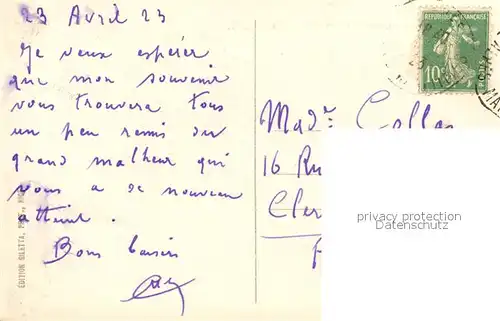 23 Avril 23
Je veux espérer
que mon souvenir
vous trouvera tous
un peu remis du
grand malheur qui
vous a de nouveau
atteint.
Bons baisers
REPUBLIQUE FRANÇAISE
10c
Madr
16 Ru
Cler
privacy protection
Datenschutz
EDITION GILETTA,